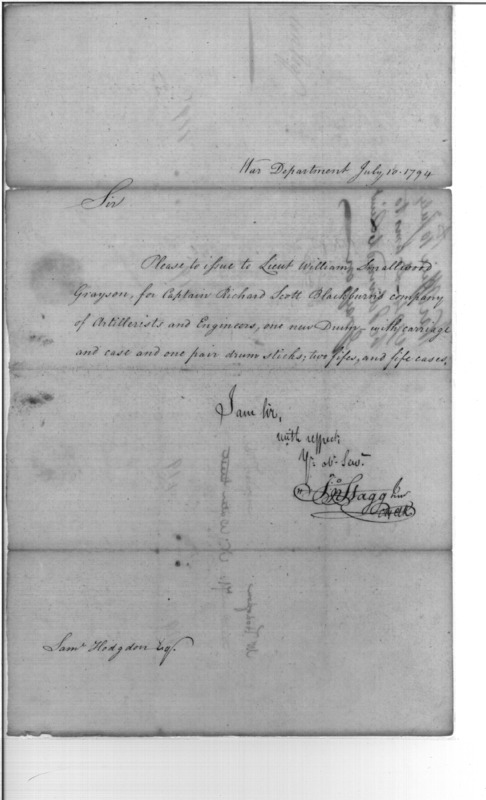 War Department July 10. 1794
Sir
Please to issue to Lieut William Smallwood
Grayson, for Captain Richard Scott Blackburn's company
of Artillerists and Engineers, one new Drum, with carriage
and case and one pair drum sticks; two fifes, and fife cases.
I am Sir,
with respect
Yr obt Servt
Jno Stagg Junr
Clerk
Saml Hodgdon Esqr.